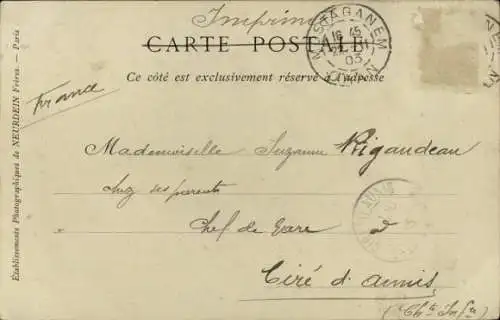 Imprimé
CARTE POSTALE
MOSTAGANEM
16 45
03
ORAN
Ce côté est exclusivement réservé à l'adresse
France
Mademoiselle Suzanne Rigaudeau
chez ses parents
Chef de Gare
à
Ciré d'Aunis
(Chte Infre)
Etablissements Photographiques de NEURDEIN Frères. — Paris